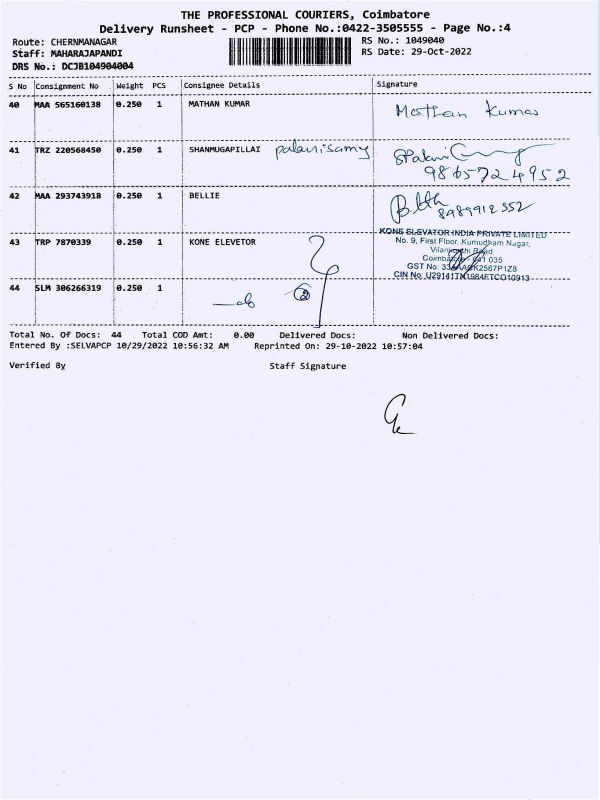 THE PROFESSIONAL COURIERS, Coimbatore
Delivery Runsheet - PCP - Phone No.:0422-3505555 - Page No.:4
Route: CHERNMANAGAR RS No.: 1049040
Staff: MAHARAJAPANDI RS Date: 29-Oct-2022
DRS No.: DCJB104904004
S No Consignment No Weight PCS Consignee Details Signature
40 MAA 565160138 0.250 1 MATHAN KUMAR Mathan Kumar
41 TRZ 220568450 0.250 1 SHANMUGAPILLAI palanisamy
9865724952
42 MAA 293743918 0.250 1 BELLIE
8989912352
KONE ELEVATOR INDIA PRIVATE LIMITED
43 TRP 7870339 0.250 1 KONE ELEVETOR No. 9, First Floor, Kumudham Nagar,
Vilankurichi Road,
Coimbatore - 641 035
GST No: 33AAACK2567P1Z8
CIN No: U29141TN1984FTC010913
44 SLM 306266319 0.250 1
Total No. Of Docs: 44 Total COD Amt: 0.00 Delivered Docs: Non Delivered Docs:
Entered By :SELVAPCP 10/29/2022 10:56:32 AM Reprinted On: 29-10-2022 10:57:04
Verified By Staff Signature